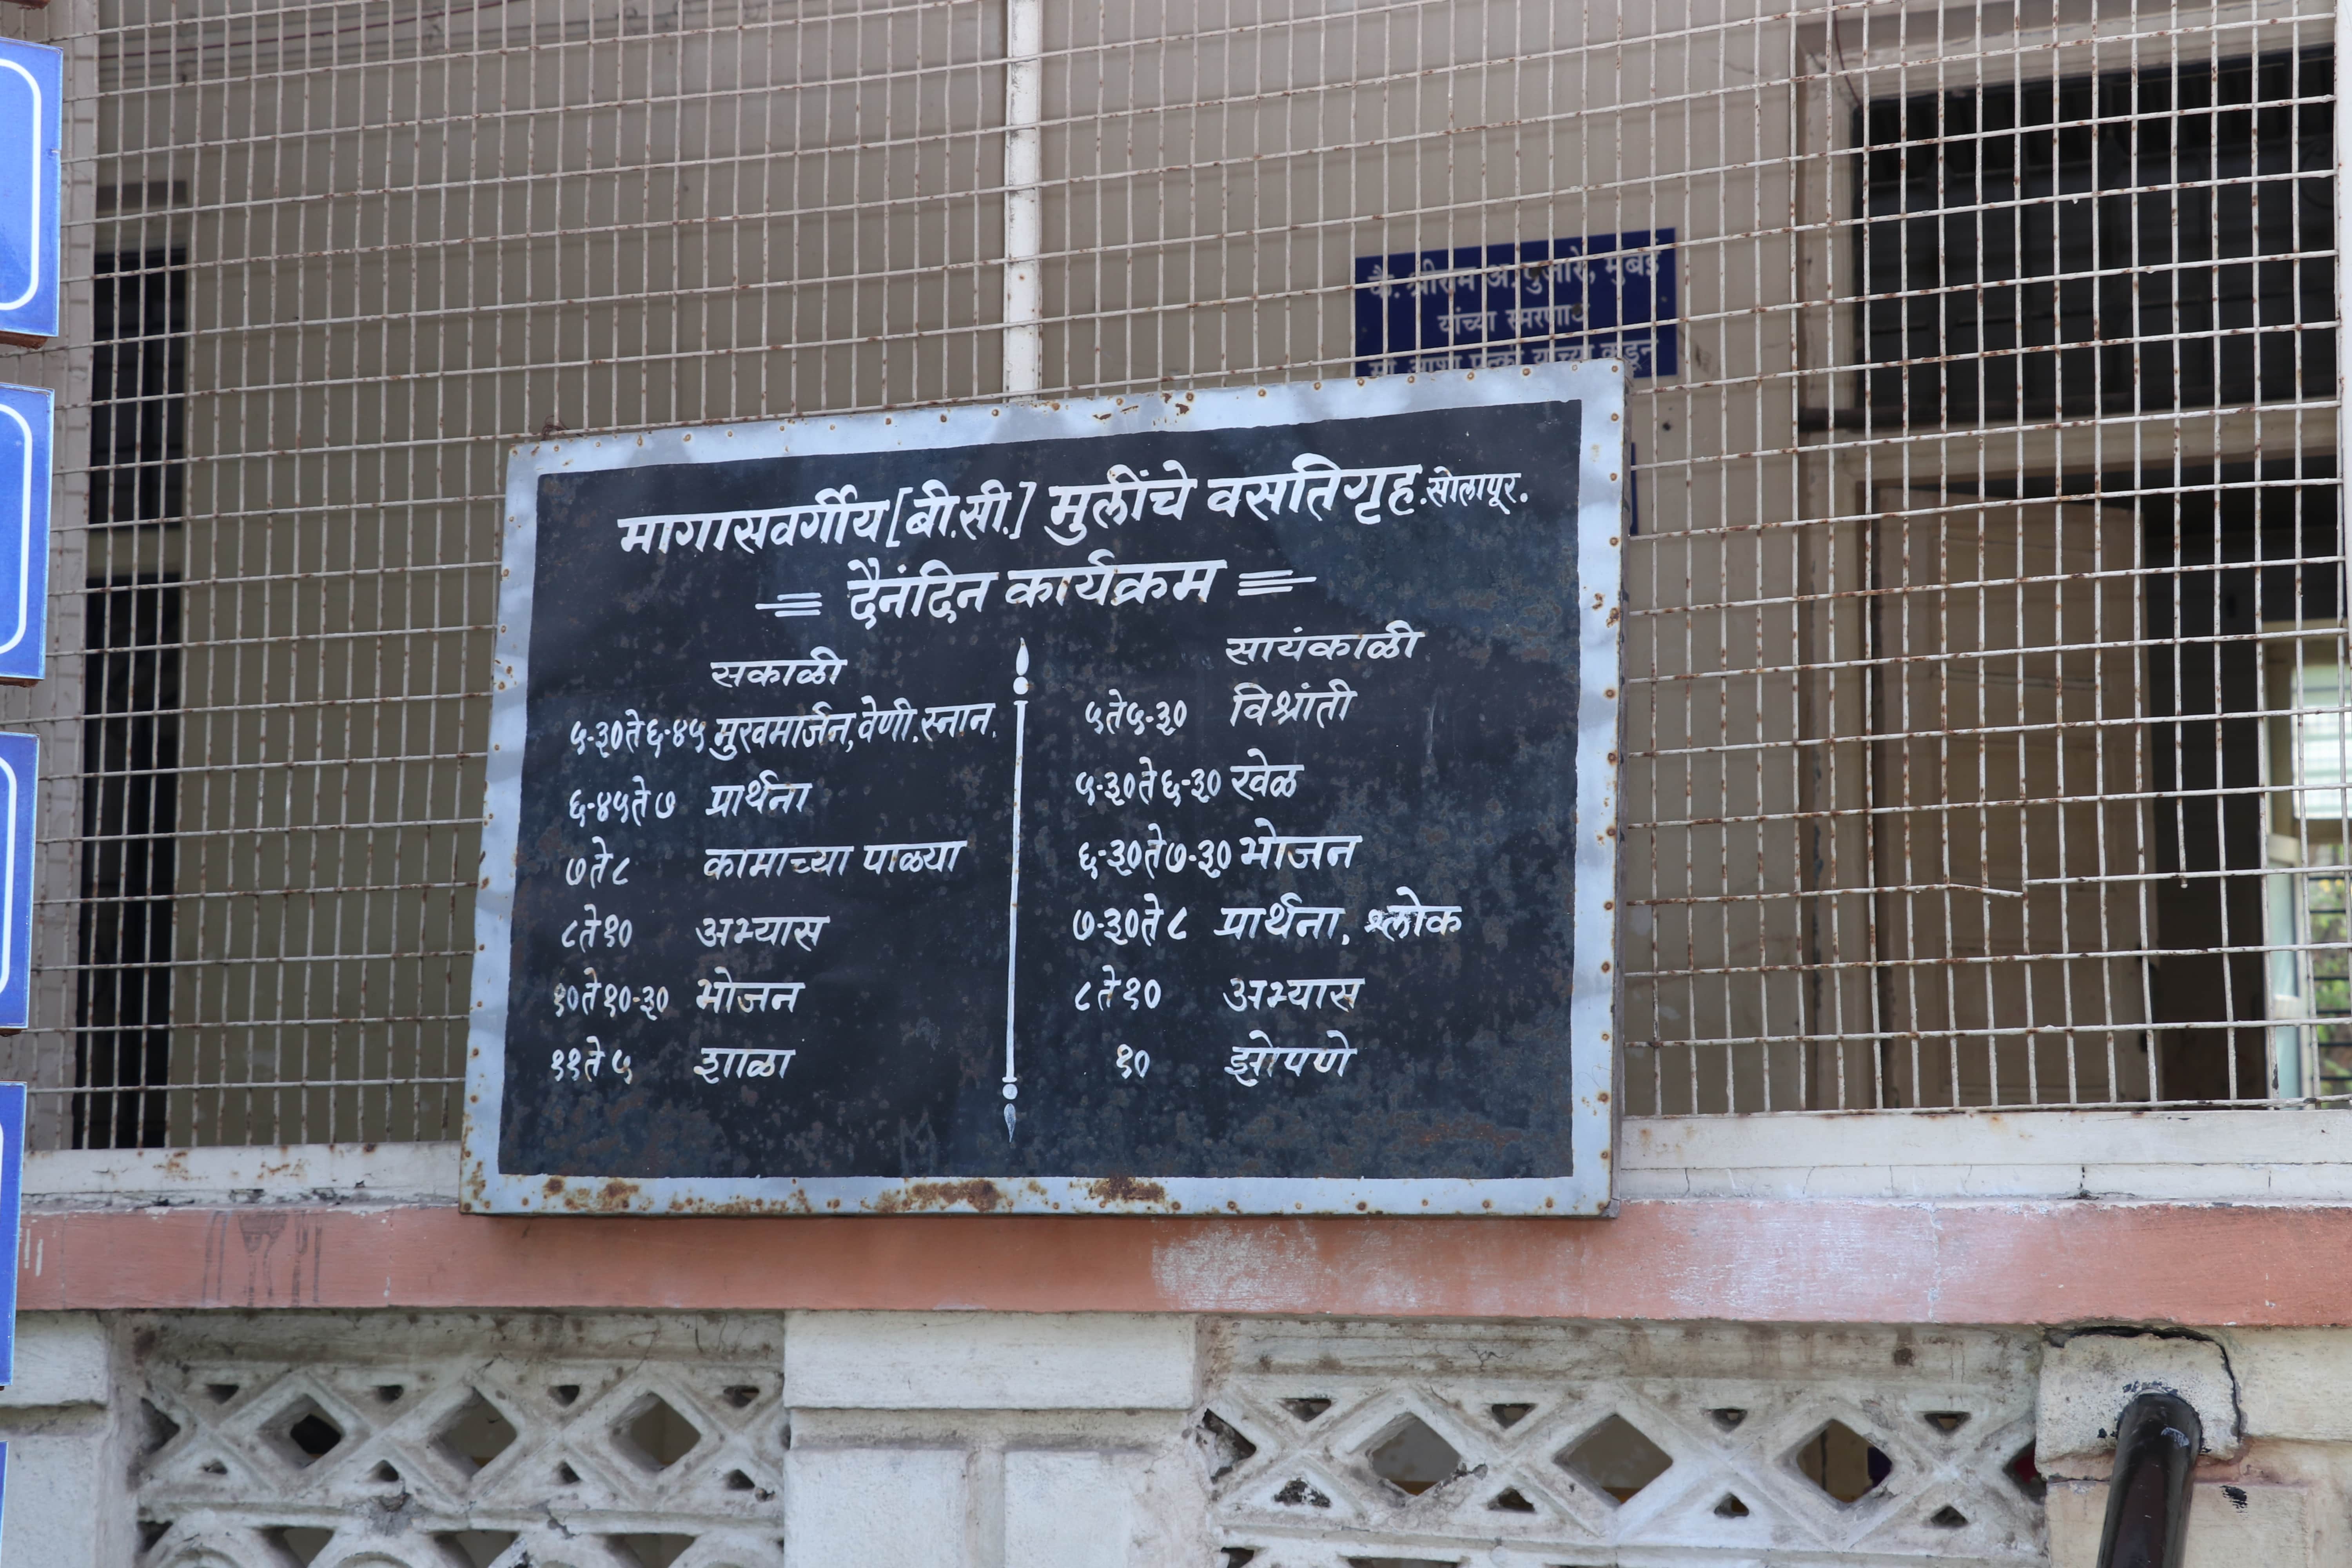 कै. श्रीराम अ. पुजारे, मुंबई
यांच्या स्मरणार्थ
यांच्या कडून
मागासवर्गीय [बी.सी.] मुलींचे वसतिगृह. सोलापूर.
दैनंदिन कार्यक्रम
सकाळी
५-३० ते ६-४५ मुखमार्जन, वेणी. स्नान.
६-४५ ते ७ प्रार्थना
७ ते ८ कामाच्या पाळ्या
८ ते १० अभ्यास
१० ते १०-३० भोजन
११ ते ५ शाळा
सायंकाळी
५ ते ५-३० विश्रांती
५-३० ते ६-३० खेळ
६-३० ते ७-३० भोजन
७-३० ते ८ प्रार्थना, श्लोक
८ ते १० अभ्यास
१० झोपणे